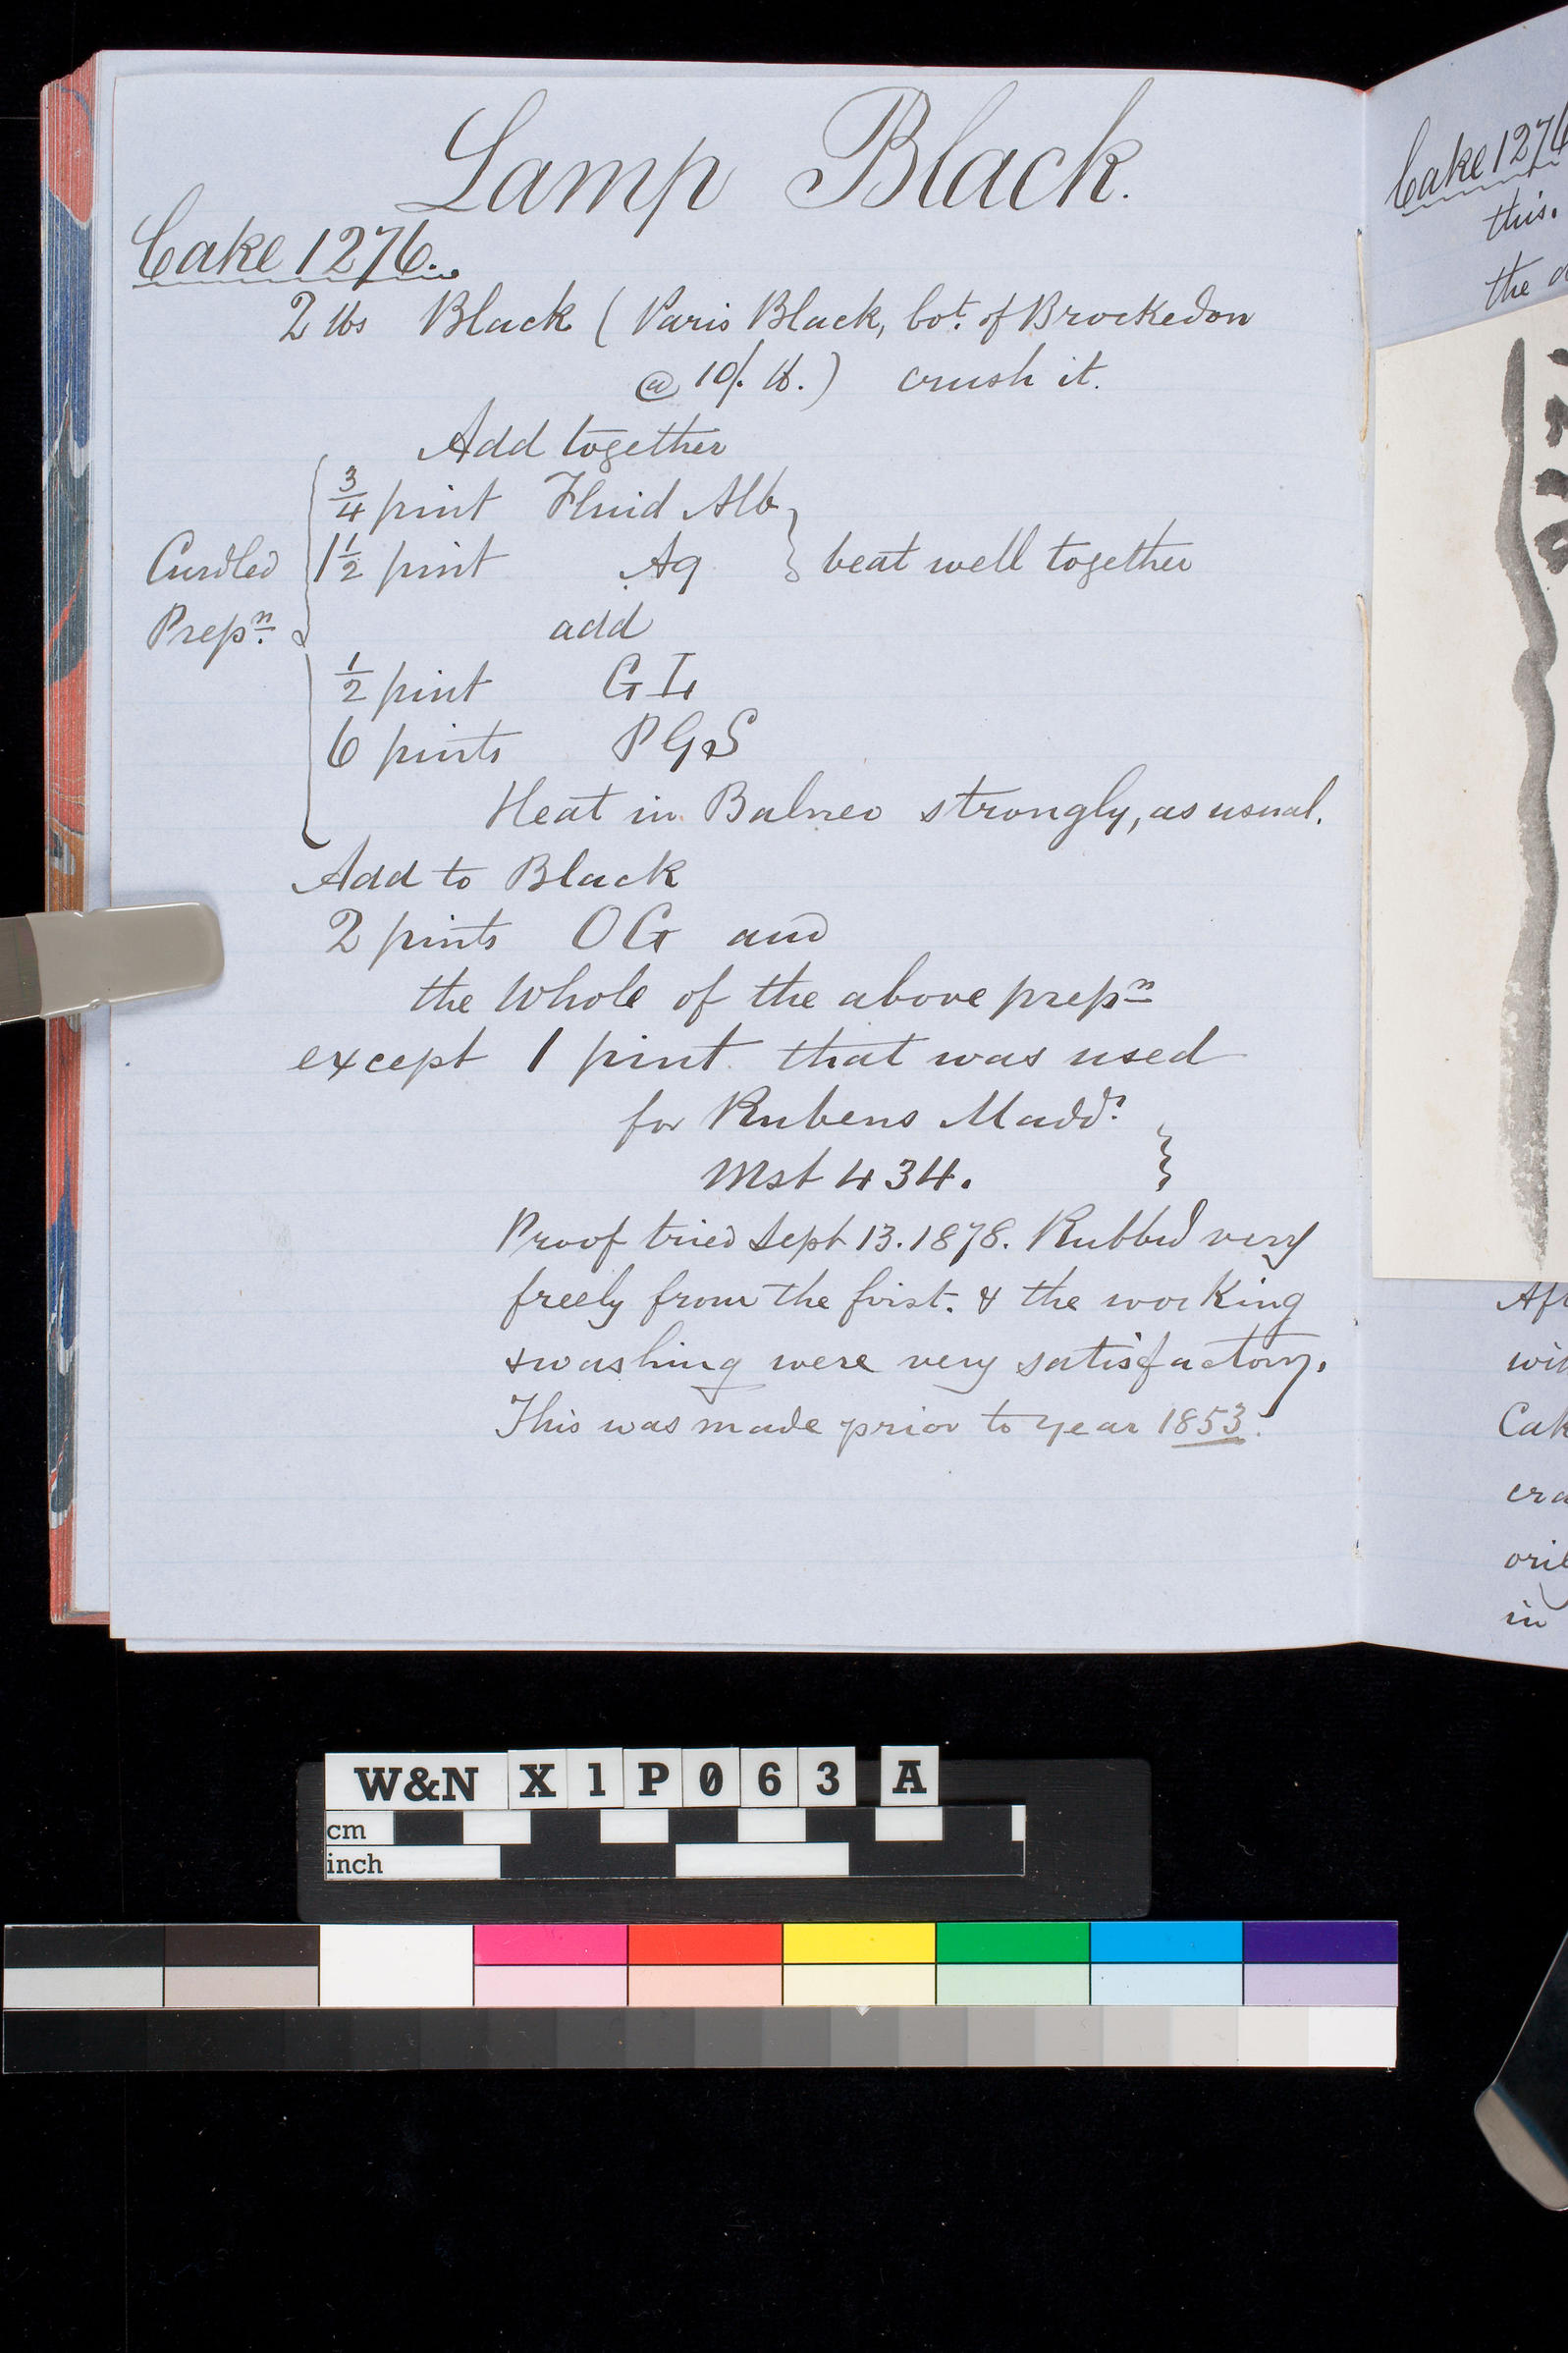 Lamp Black.
Cake 1276.
2 lbs Black (Paris Black, bot. of Brockedon
@ 10/. lb.) crush it.
Add together
3/4 pint Fluid Alb
Curdled 1 1/2 pint Aq } beat well together
Prepn. add
1/2 pint G L
6 pints P G S
Heat in Balneo strongly, as usual.
Add to Black
2 pints O G and
the Whole of the above prepn
except 1 pint that was used
for Rubens Madd.r
Mst 434.
Proof tried Sept 13. 1878. Rubbed very
freely from the first. & the working
& washing were very satisfactory.
This was made prior to year 1853.
Cake 1276
this.
the
Cak
in
W&N X1P063 A
cm
inch